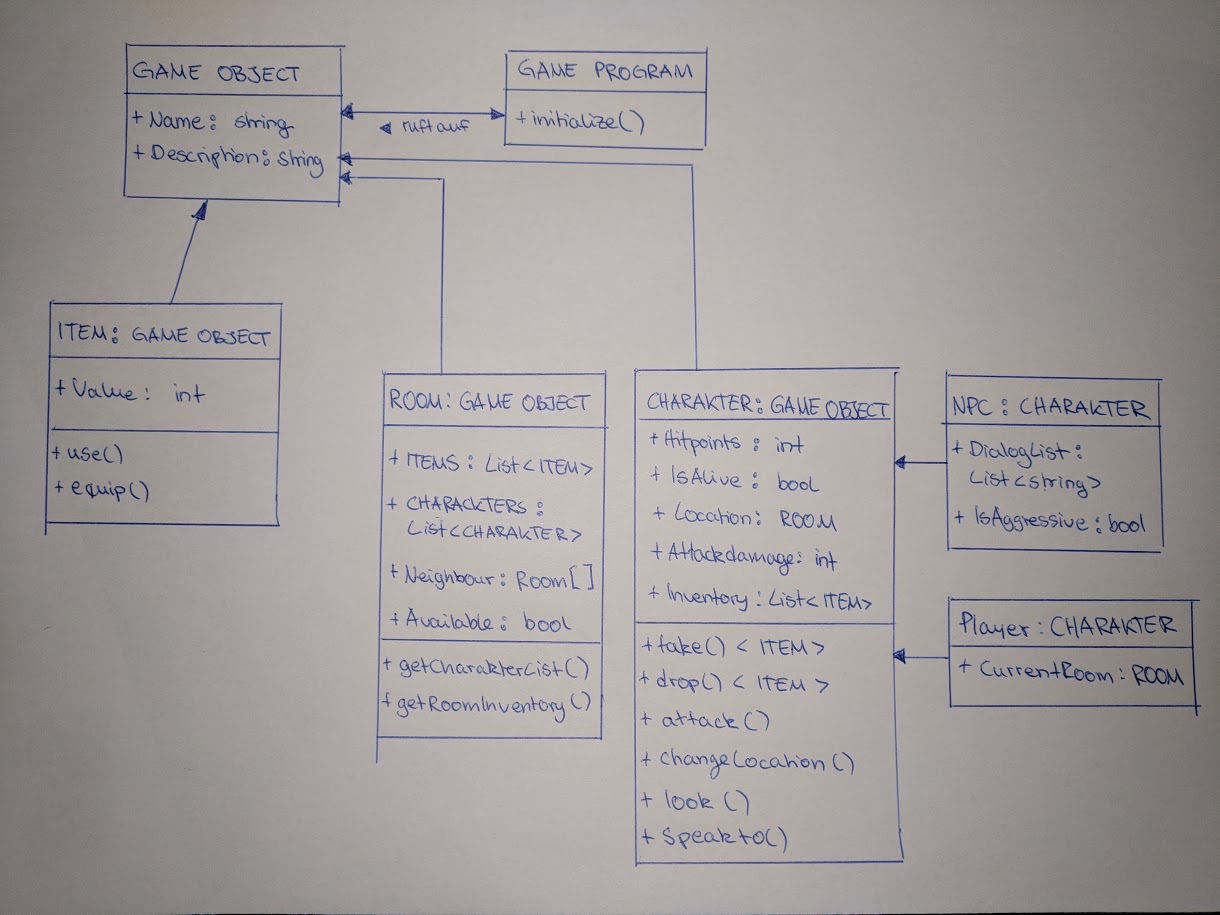 GAME OBJECT
+ Name: string
+ Description: String
GAME PROGRAM
+ initialize()
◄ ruft auf
ITEM: GAME OBJECT
+ Value: int
+ use()
+ equip()
ROOM: GAME OBJECT
+ ITEMS: List<ITEM>
+ CHARACKTERS:
List<CHARAKTER>
+ Neighbour: Room[]
+ Available: bool
+ getCharakterList()
+ getRoomInventory()
CHARAKTER: GAME OBJECT
+ Hitpoints: int
+ IsAlive: bool
+ Location: ROOM
+ Attackdamage: int
+ Inventory: List<ITEM>
+ take() <ITEM>
+ drop() <ITEM>
+ attack()
+ changeLocation()
+ look()
+ Speakto()
NPC: CHARAKTER
+ DialogList:
List<string>
+ IsAggressive: bool
Player: CHARAKTER
+ CurrentRoom: ROOM